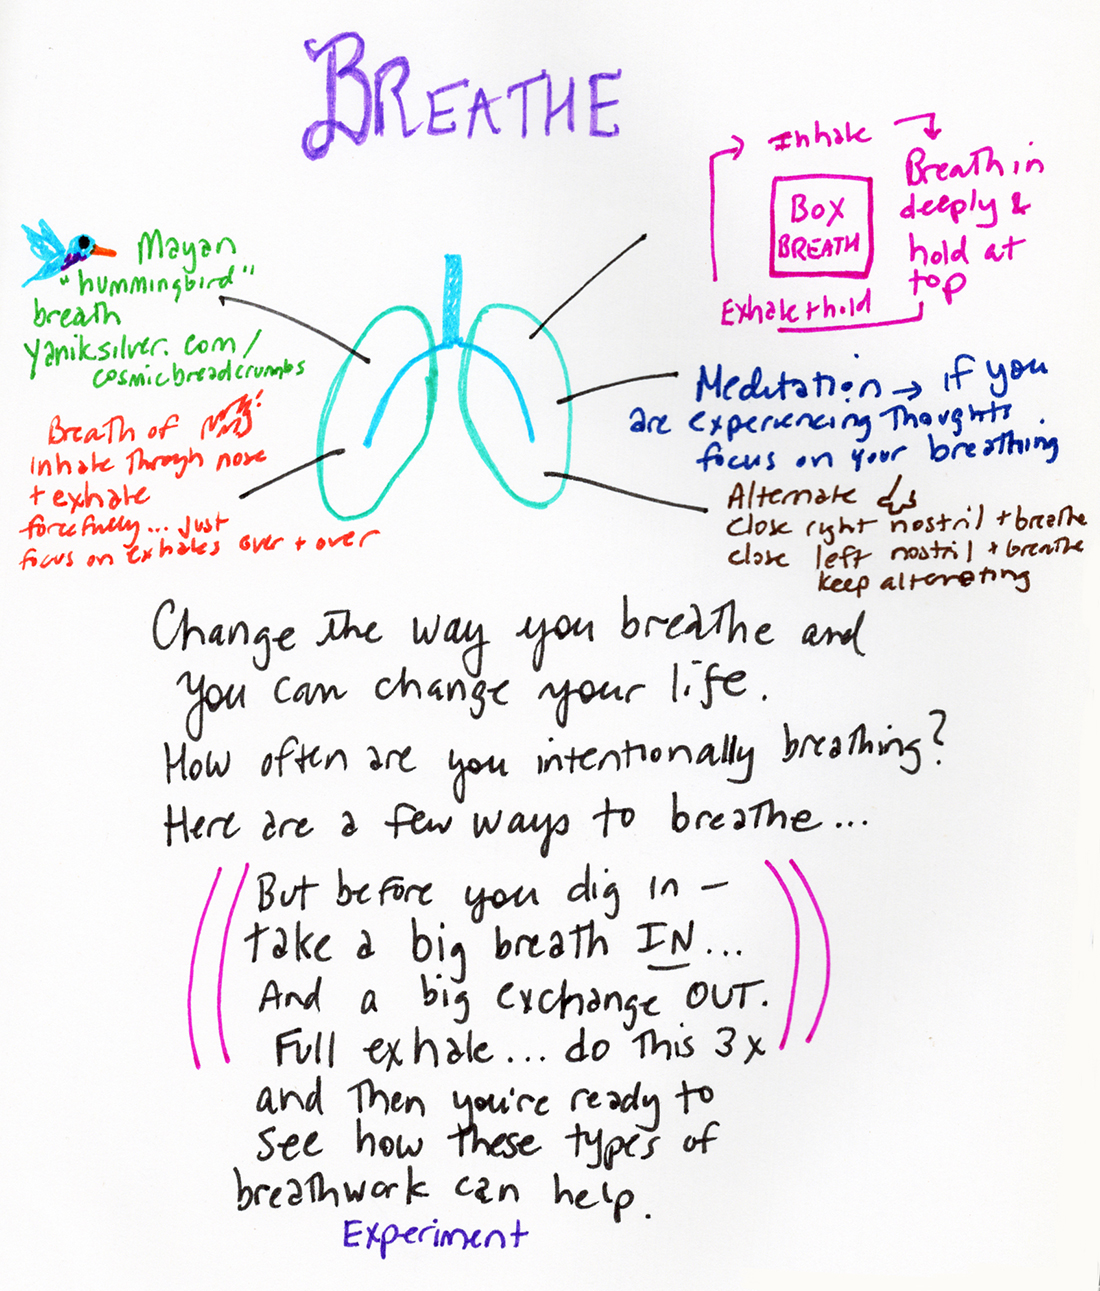 BREATHE
Inhale
Breath in
deeply &
hold at
top
BOX
BREATH
Exhale + hold
Mayan
"hummingbird"
breath
yaniksilver.com/
cosmicbreadcrumbs
Breath of
inhale through nose
+ exhale
forcefully... just
focus on exhales over + over
Meditation → if you
are experiencing thoughts
focus on your breathing
Alternate
close right nostril + breathe
close left nostril + breathe
keep alternating
Change the way you breathe and
you can change your life.
How often are you intentionally breathing?
Here are a few ways to breathe...
But before you dig in -
take a big breath IN...
And a big exchange OUT.
Full exhale... do this 3x
and then you're ready to
see how these types of
breathwork can help.
Experiment